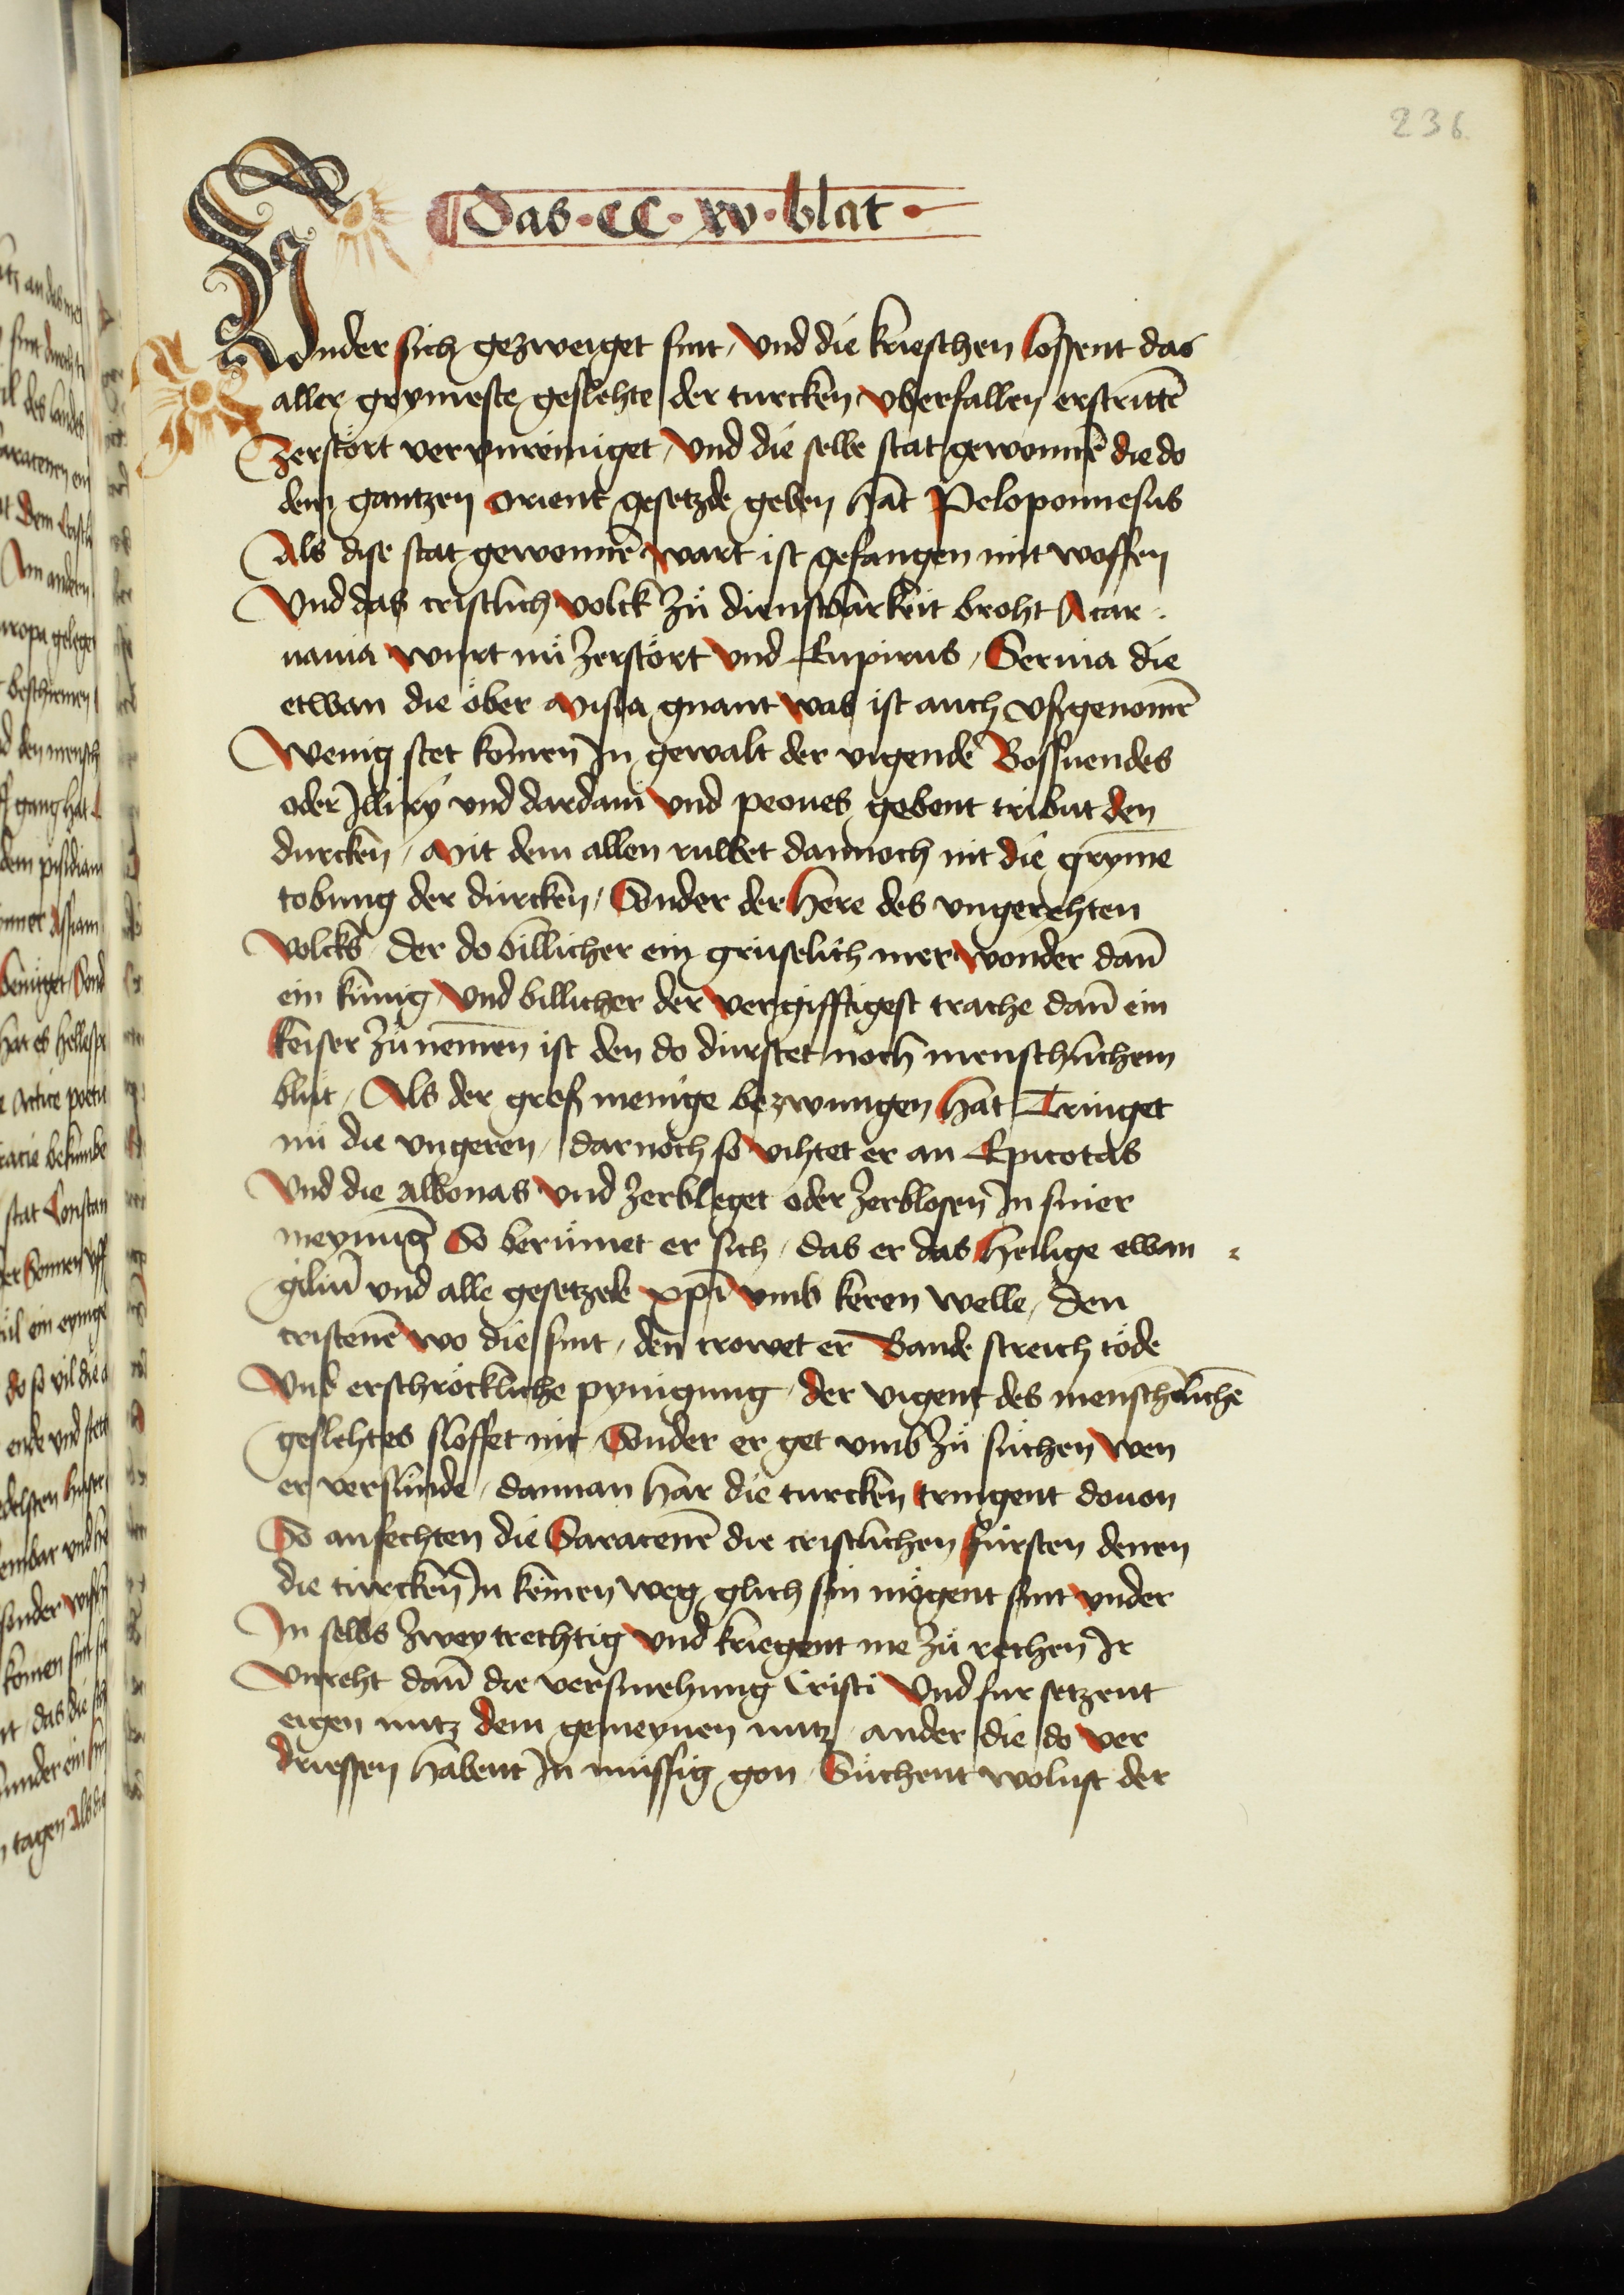 236
Das · CC · xv · blat ·
Vnder sich gezweiget sint / Vnd die krieschen lossent das
aller grymeste geslehte der turcken vberfallen erstrittē
Zerstört vervnreiniget / Vnd die selbe stat gewonnē die do
dem gantzen orient gesetzde geben hāt Peloponnesus
Als dise stat gewonnē wart ist gefangen mit woffen
Vnd das cristlich volck zů dienstbarkeit broht Acar ⸗
nania wurt nů zerstört vnd Eupirus / Seruia die
etwan die öber misia gnant was ist auch vffgenomē
Wenig stet komen In gewalt der vigende Bossnendes
oder Illiry vnd dardani vnd peones gebent tribut den
durcken / Mit dem allen ruwet dannoch nit die gryme
tobung der durcken / Sunder der here des vngerehten
Volcks der do billicher ein gruselich mer wonder dan̄
ein kunig / Vnd billicher der vergifftigest trache dan̄ ein
keiser zů nemen ist den do durstet noch menschlichem
blůt / Als der groß menige bezwungen hat Tringet
nů die vngeren / dar noch so vihtet er an Epirotas
Vnd die albonas vnd zerbleget oder zerblosen In siner
meynung So berümet er sich / das er das heilige ewan ⸗
giliū vnd alle gesetzde xp̄i vmb keren welle / den
cristenē wo die sint / den trowet er Bande streich töde
Vnd erschröckliche pynigung / der vigent des menschlichē
geslehtes sloffet nit / Sunder er get vmb zů sůchen wen
er verslinde / dannan har die turcken tringent douon
So anfechten die Saracenē die cristlichen fürsten denen
die türcken In keinen weg glich sin mögent sint vnder
In selbs zweytrechtig vnd kriegent me zů rechen Ir
Vnreht dan̄ die versmehung Cristi Vnd fur setzent
eigen nutz dem gemeynen nutz / ander die do ver
driessen habent In müssig gon Sůchent wolust der